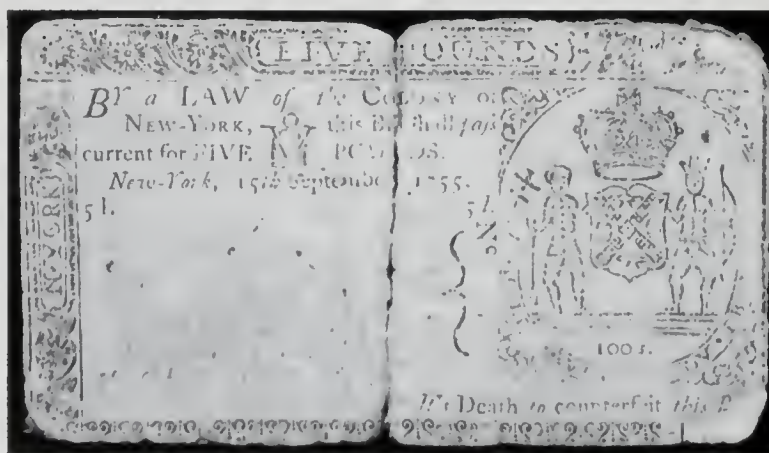 FIVE POUNDS
BY a LAW of the COLONY of
NEW-YORK, this Bill shall pass
current for FIVE POUNDS.
New-York, 15th September, 1755.
5 l. 5 l.
N. YORK
100 s.
It's Death to counterfeit this B